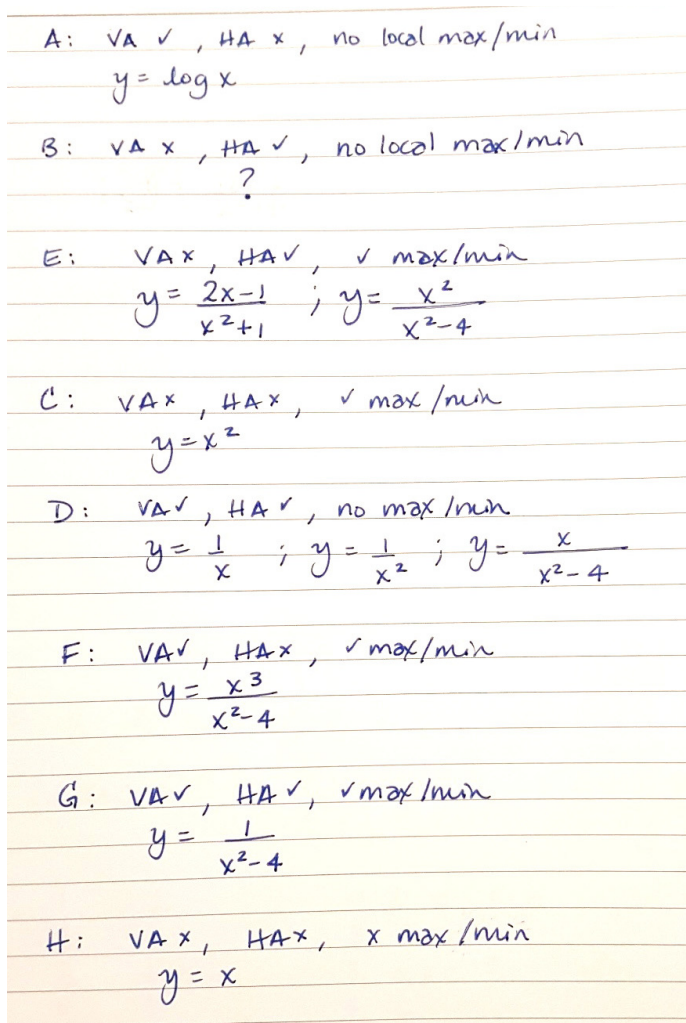 A: VA ✓, HA ×, no local max/min
y = log x
B: VA ×, HA ✓, no local max/min
?
E: VA ×, HA ✓, ✓ max/min
y = (2x-1)/(x²+1) ; y = x²/(x²-4)
C: VA ×, HA ×, ✓ max/min
y = x²
D: VA ✓, HA ✓, no max/min
y = 1/x ; y = 1/x² ; y = x/(x²-4)
F: VA ✓, HA ×, ✓ max/min
y = x³/(x²-4)
G: VA ✓, HA ✓, ✓ max/min
y = 1/(x²-4)
H: VA ×, HA ×, × max/min
y = x